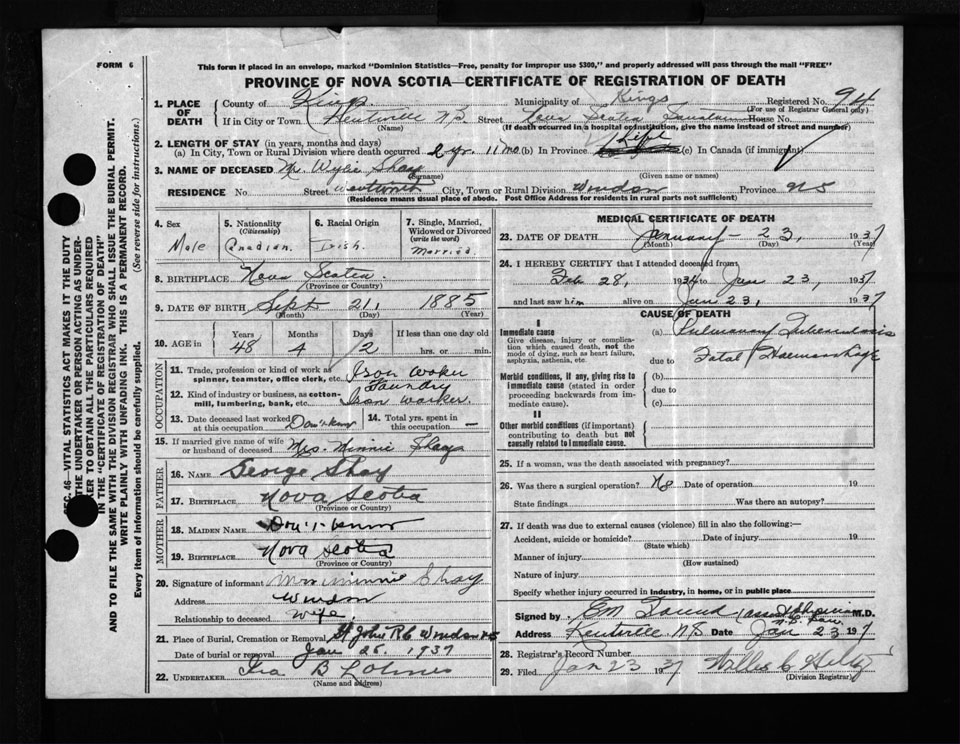 FORM 6
This form if placed in an envelope, marked "Dominion Statistics—Free, penalty for improper use $300," and properly addressed will pass through the mail "FREE"
PROVINCE OF NOVA SCOTIA—CERTIFICATE OF REGISTRATION OF DEATH
1. PLACE OF DEATH County of Kings Municipality of Kings Registered No. 94
(For use of Registrar General only)
If in City or Town Kentville N.S. Street Nova Scotia House No.
(Name) (If death occurred in a hospital or institution, give the name instead of street and number)
2. LENGTH OF STAY (in years, months and days)
(a) In City, Town or Rural Division where death occurred 2 yr. 11 mo (b) In Province Life (c) In Canada (if immigrant)
3. NAME OF DECEASED Mr. Wylie Shay
(Surname) (Given name or names)
RESIDENCE No Street Wentworth City, Town or Rural Division Windsor Province NS
(Residence means usual place of abode. Post Office Address for residents in rural parts not sufficient)
4. Sex Male
5. Nationality (Citizenship) Canadian.
6. Racial Origin Irish.
7. Single, Married, Widowed or Divorced (write the word) Married.
8. BIRTHPLACE Nova Scotia.
(Province or Country)
9. DATE OF BIRTH Sept 21, 1885
(Month) (Day) (Year)
10. AGE in Years 48 Months 4 Days 2 If less than one day old hrs. or min.
OCCUPATION
11. Trade, profession or kind of work as spinner, teamster, office clerk, etc. Iron Worker
12. Kind of industry or business, as cotton-mill, lumbering, bank, etc. Foundry Iron Worker.
13. Date deceased last worked at this occupation Don't know
14. Total yrs. spent in this occupation —
15. If married give name of wife or husband of deceased Mrs. Minnie Shay
FATHER
16. NAME George Shay
17. BIRTHPLACE Nova Scotia
(Province or Country)
MOTHER
18. MAIDEN NAME Don't know
19. BIRTHPLACE Nova Scotia
(Province or Country)
20. Signature of informant Mrs Minnie Shay
Address Windsor
Relationship to deceased Wife
21. Place of Burial, Cremation or Removal St John R.C Windsor NS
Date of burial or removal Jan 26, 1937
22. UNDERTAKER Ira B
(Name and address)
MEDICAL CERTIFICATE OF DEATH
23. DATE OF DEATH January – 23, 1937
(Month) (Day) (Year)
24. I HEREBY CERTIFY that I attended deceased from
Feb 28, 1934 to Jan 23, 1937
and last saw him alive on Jan 23, 1937
CAUSE OF DEATH
I
Immediate cause
Give disease, injury or complication which caused death, not the mode of dying, such as heart failure, asphyxia, asthenia, etc.
(a) Pulmonary Tuberculosis
due to Fatal Haemorrhage
Morbid conditions, if any, giving rise to immediate cause (stated in order proceeding backwards from immediate cause).
(b)
due to
(c)
II
Other morbid conditions (if important) contributing to death but not causally related to immediate cause.
25. If a woman, was the death associated with pregnancy?
26. Was there a surgical operation? No Date of operation 19
State findings Was there an autopsy?
27. If death was due to external causes (violence) fill in also the following:—
Accident, suicide or homicide? Date of injury 19
(State which)
Manner of injury
(How sustained)
Nature of injury
Specify whether injury occurred in industry, in home, or in public place
Signed by M.D.
Address Kentville N.S Date Jan 23 1937
28. Registrar's Record Number
29. Filed Jan 23 1937
(Division Registrar)
SEC. 46—VITAL STATISTICS ACT MAKES IT THE DUTY
THE UNDERTAKER OR PERSON ACTING AS UNDER-
KER TO OBTAIN ALL THE PARTICULARS REQUIRED
IN THE "CERTIFICATE OF REGISTRATION OF DEATH"
AND TO FILE THE SAME WITH THE DIVISION REGISTRAR WHO SHALL ISSUE THE BURIAL PERMIT.
WRITE PLAINLY WITH UNFADING INK. THIS IS A PERMANENT RECORD.
Every item of information should be carefully supplied. (See reverse side for instructions.)